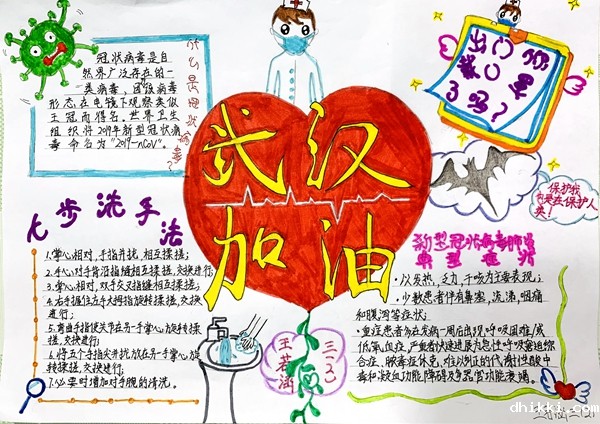 什么是冠状病毒?
冠状病毒是自
然界广泛存在的一
类病毒，因该病毒
形态在电镜下观察类似
王冠而得名。世界卫生
组织将2019年新型冠状病
毒命名为"2019-nCoV"。
出门
戴口罩
了吗?
武汉
加油
保护我
也是在保护人
类!
七步洗手法
1.掌心相对,手指并拢,相互揉搓;
2.手心对手背沿指缝相互揉搓,交换进行;
3.掌心相对,双手交叉指缝相互揉搓;
4.右手握住左手大拇指旋转揉搓,交换
进行;
5.弯曲手指使关节在另一手掌心旋转揉
搓,交换进行;
6.将五个手指尖并拢放在另一手掌心旋
转揉搓,交换进行;
7.必要时增加对手腕的清洗。
新型冠状病毒肺炎
典型症状
·以发热,乏力,干咳为主要表现;
·少数患者伴有鼻塞,流涕,咽痛
和腹泻等症状;
·重症患者多在发病一周后出现呼吸困难/或
低氧血症,严重者快速进展为急性呼吸窘迫综
合症、脓毒症休克,难以纠正的代谢性酸中
毒和凝血功能障碍及多器官功能衰竭。
王若涵
三(2)
dhikki.com